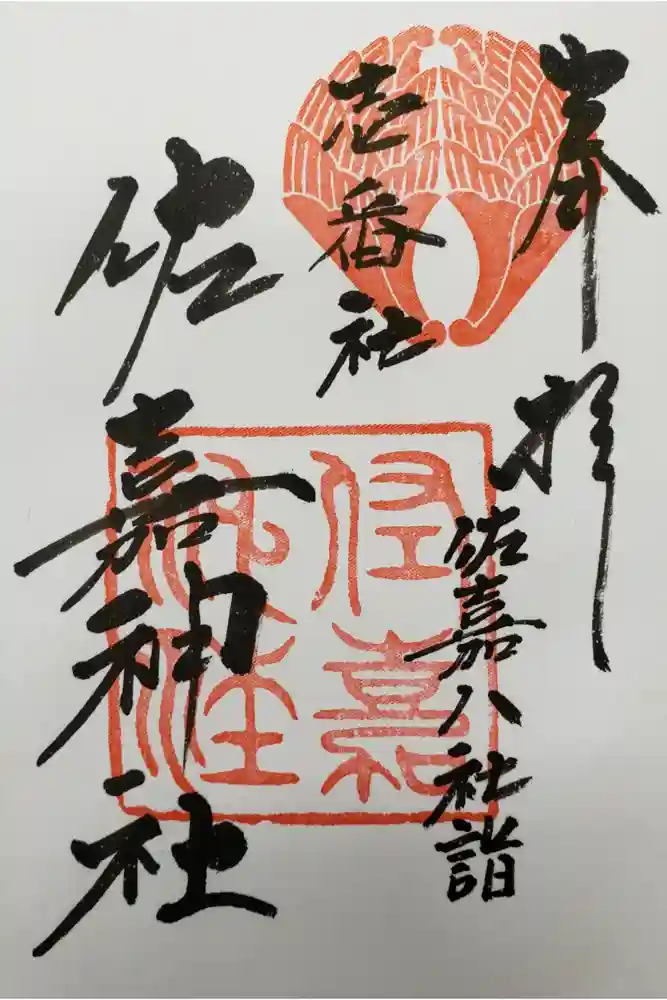 奉拝
佐嘉八社詣
壱番社
佐嘉神社
佐嘉神社